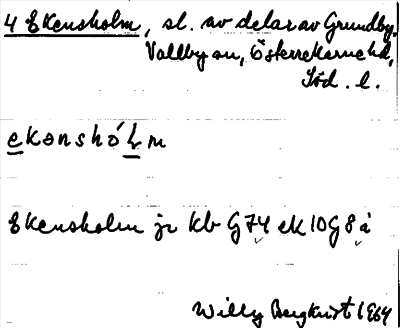 4 Ekensholm, sl. av delar av Grundby,
Vallby sn, Österrekarne hd,
Söd. l.
ekənshólm
Ekensholm jr kb G74 ek 10G8å
Willy Bergkvist 1964